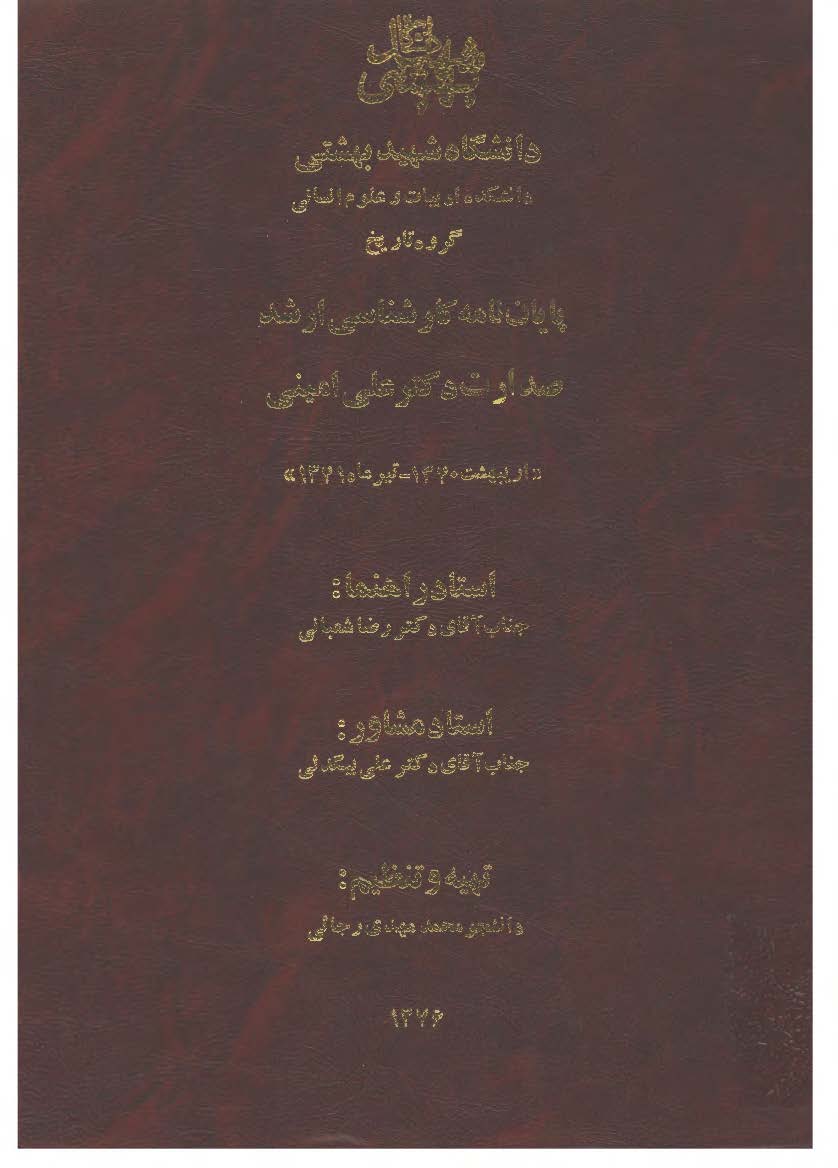 شهید
بهشتی
دانشگاه شهید بهشتی
دانشکده ادبیات و علوم انسانی
گروه تاریخ
پایان‌نامه کارشناسی ارشد
صدارت دکتر علی امینی
«اردیبهشت ۱۳۴۰-تیر ماه ۱۳۴۱»
استاد راهنما:
جناب آقای دکتر رضا شعبانی
استاد مشاور:
جناب آقای دکتر علی بیگدلی
تهیه و تنظیم:
دانشجو محمد مهدی رجائی
۱۳۷۶